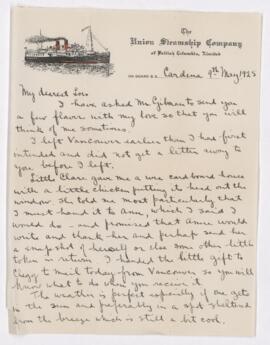 The
Union Steamship Company
of British Columbia, Limited
ON BOARD S.S. Cardena 9th May 1925
My dearest Lois
I have asked Mr. Gilman to send you
a few flowers with my love so that you will
think of me sometimes.
I left Vancouver earlier than I had first
intended and did not get a letter away to
you before I left.
Little Clare gave me a wee cardboard house
with a little chicken putting its head out the
window. She told me most particularly that
I must hand it to Ann, which I said I
would do - and promised that Anne would
write and thank her and perhaps send her
a snapshot of herself or else some other little
token in return. I handed the little gift to
Clegg to mail today from Vancouver so you will
know what to do when you receive it.
The weather is perfect especially if one gets
in the sun and preferably in a spot sheltered
from the breeze which is still a bit cool.